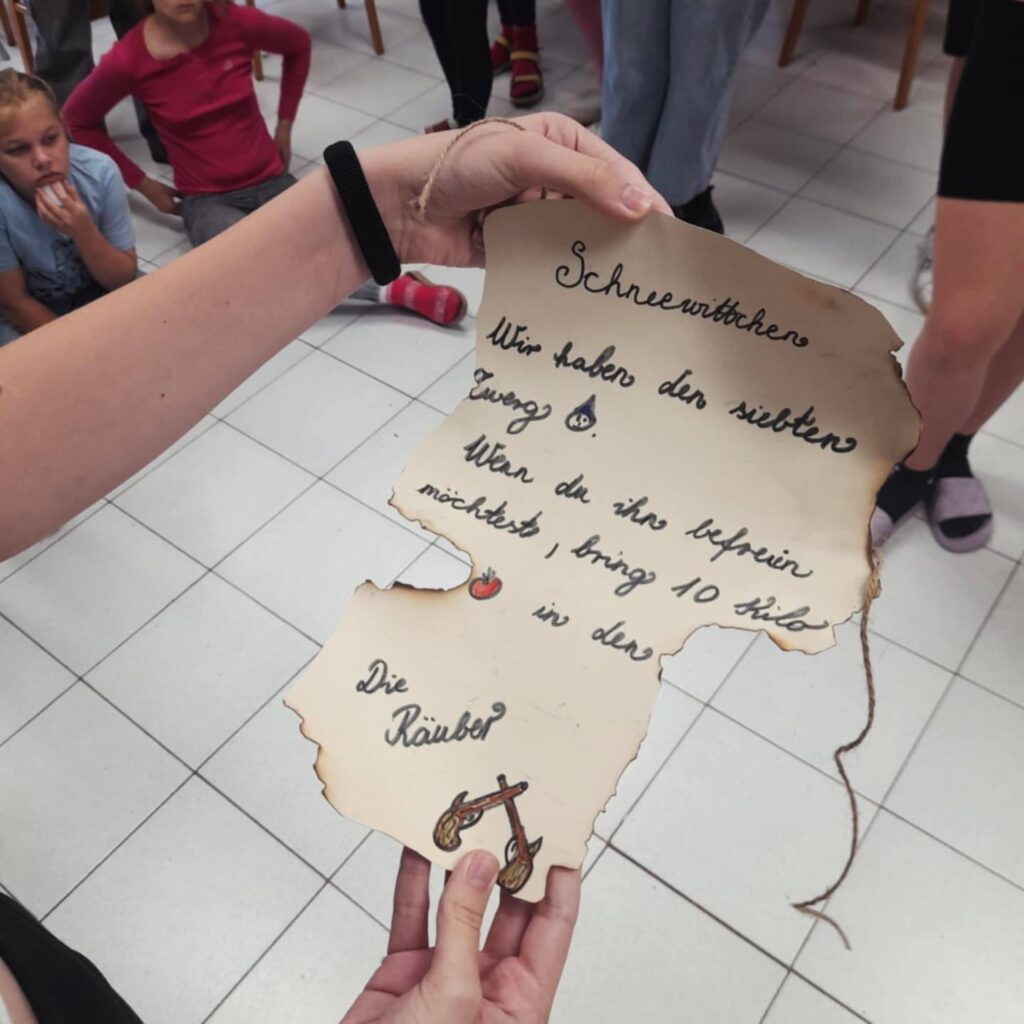 Schneewittchen
Wir haben den siebten
Zwerg .
Wenn du ihn befreien
möchtest, bring 10 Kilo
in den
Die
Räuber